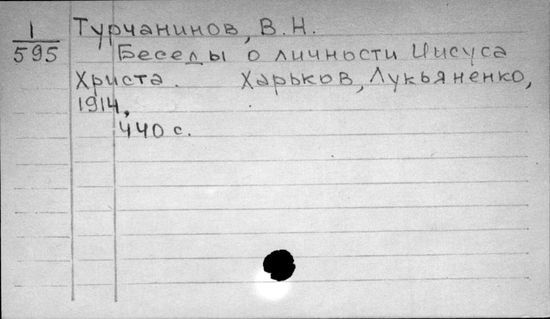 1
595
Турчанинов, В.Н.
Беседы о личности Иисуса
Христа. Харьков, Лукьяненко,
1914,
440 с.